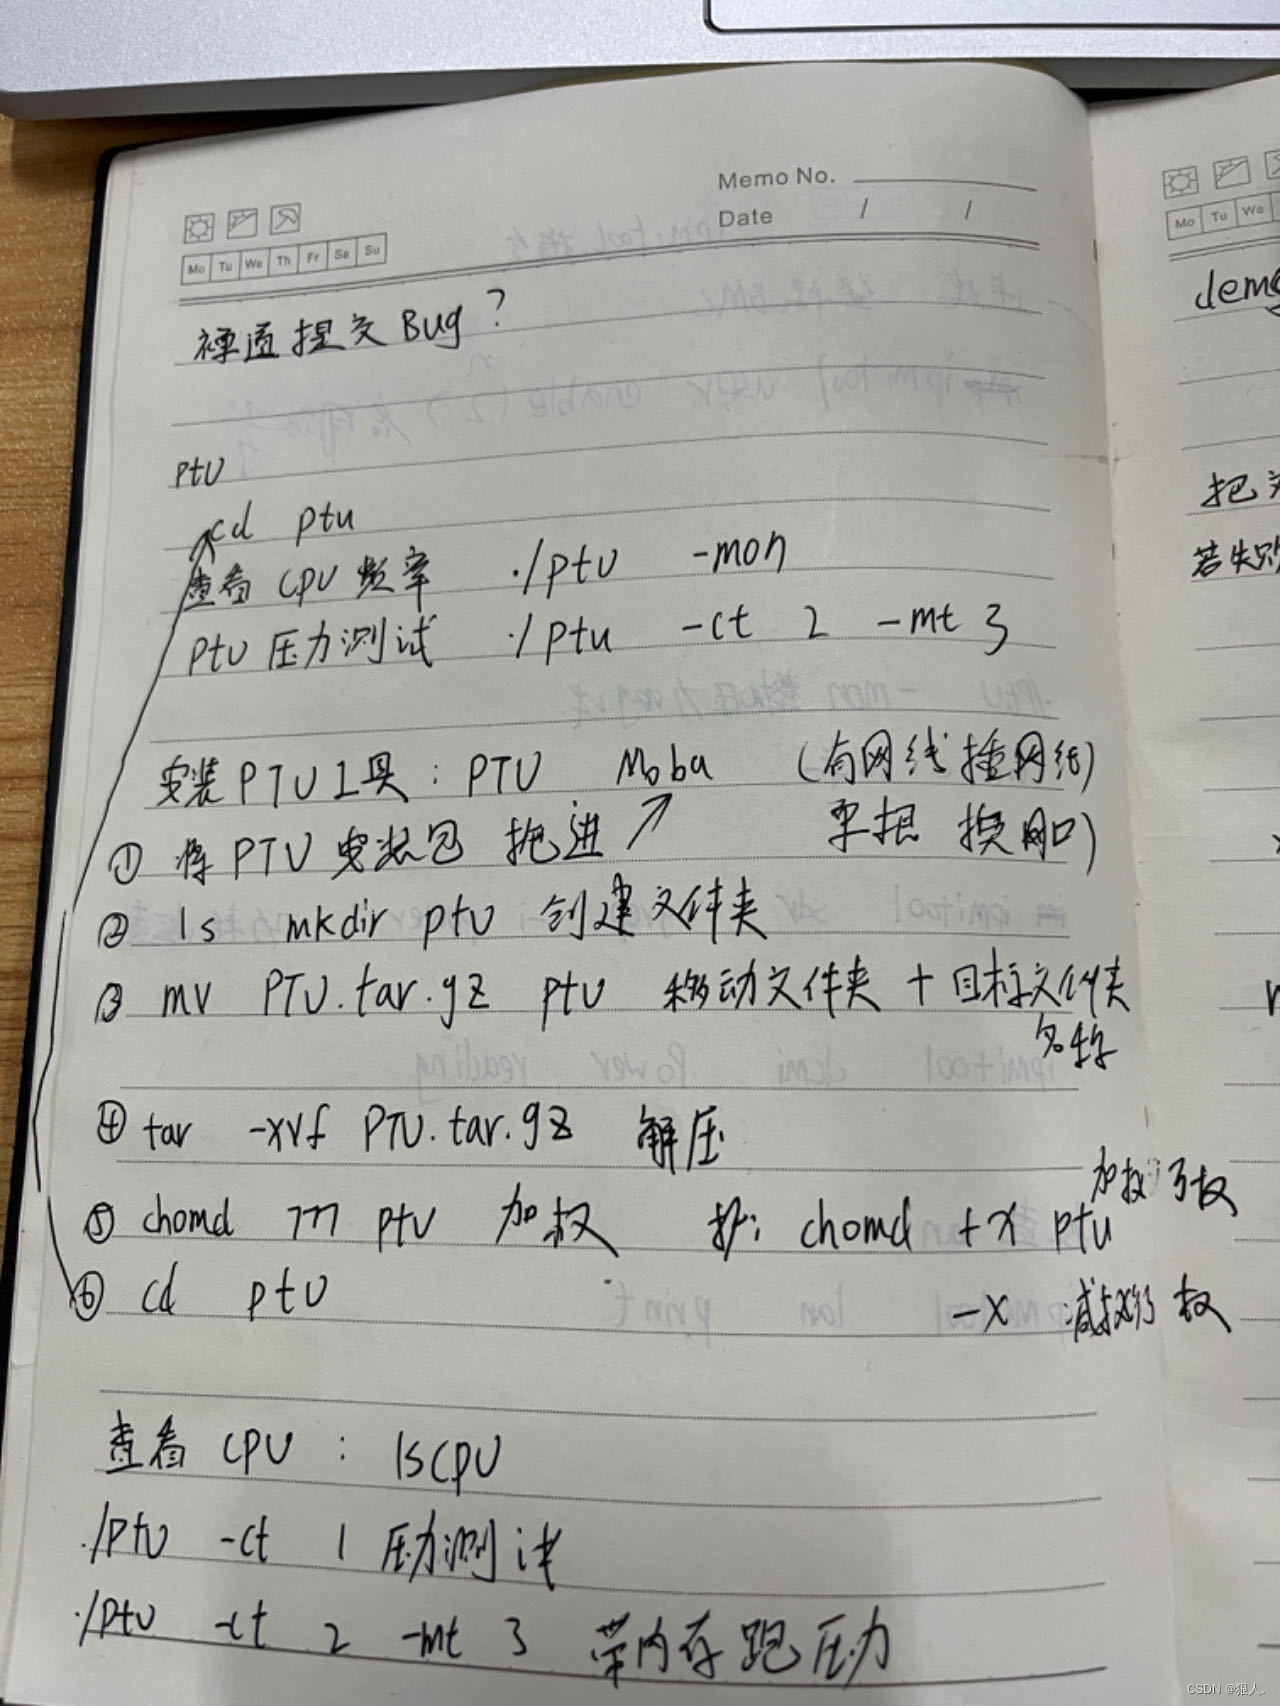 Memo No.
Date / /
Mo Tu We Th Fr Sa Su
禅道提交Bug?
ptu
cd ptu
查看 CPU 频率 ./ptu -mon
ptu 压力测试 ./ptu -ct 2 -mt 3
安装PTU工具: PTU Moba (有网线插网线)
换网口)
① 将PTU安装包 拖进
② ls mkdir ptu 创建文件夹
③ mv PTU.tar.gz ptu 移动文件夹 + 目标文件夹
名称
④ tar -xvf PTU.tar.gz 解压
加权
⑤ chomd 777 ptu 加权 chomd +x ptu
⑥ cd ptu -x 权
查看 CPU : lscpu
./ptu -ct 1 压力测试
./ptu -ct 2 -mt 3 带内存跑压力
Mo Tu We
把
若失败
CSDN @狠人.